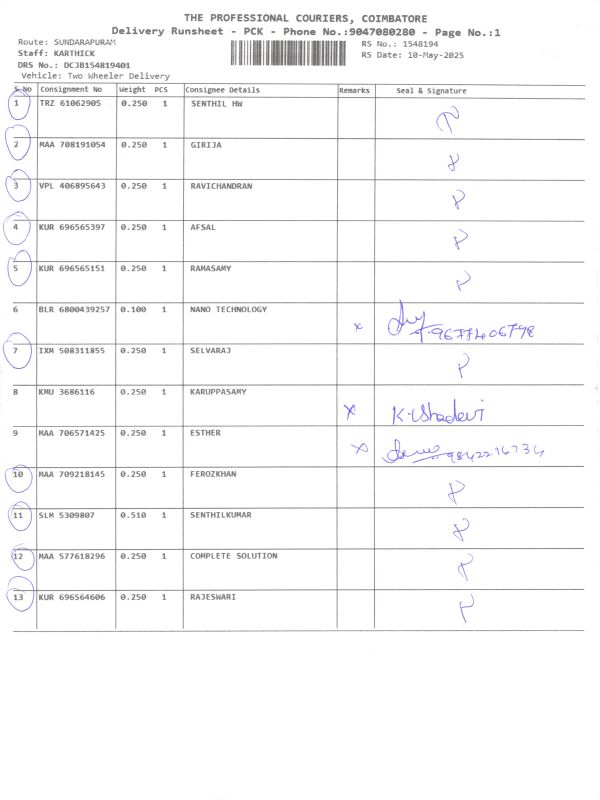 THE PROFESSIONAL COURIERS, COIMBATORE
Delivery Runsheet - PCK - Phone No.:9047080280 - Page No.:1
Route: SUNDARAPURAM RS No.: 1548194
Staff: KARTHICK RS Date: 10-May-2025
DRS No.: DCJB154819401
Vehicle: Two Wheeler Delivery
S.No Consignment No Weight PCS Consignee Details Remarks Seal & Signature
1 TRZ 61062905 0.250 1 SENTHIL HW
2 MAA 708191054 0.250 1 GIRIJA
3 VPL 406895643 0.250 1 RAVICHANDRAN
4 KUR 696565397 0.250 1 AFSAL
5 KUR 696565151 0.250 1 RAMASAMY
6 BLR 6800439257 0.100 1 NANO TECHNOLOGY x 9677406798
7 IXM 508311855 0.250 1 SELVARAJ
8 KMU 3686116 0.250 1 KARUPPASAMY x K-Ushadevi
9 MAA 706571425 0.250 1 ESTHER x
10 MAA 709218145 0.250 1 FEROZKHAN
11 SLM 5309807 0.510 1 SENTHILKUMAR
12 MAA 577618296 0.250 1 COMPLETE SOLUTION
13 KUR 696564606 0.250 1 RAJESWARI